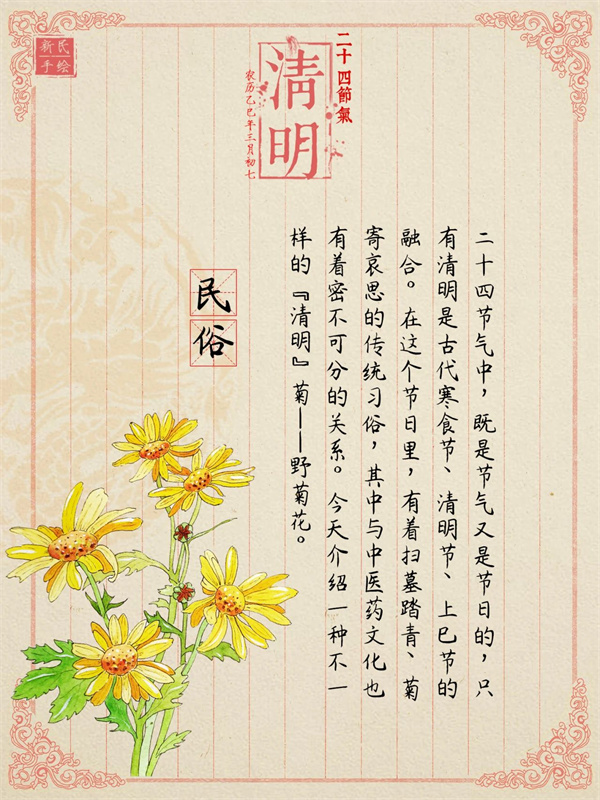 新民
手绘
二十四節氣
清明
农历乙巳年三月初七
二十四节气中，既是节气又是节日的，只
有清明是古代寒食节、清明节、上巳节的
融合。在这个节日里，有着扫墓踏青、菊
寄哀思的传统习俗，其中与中医药文化也
有着密不可分的关系。今天介绍一种不一
样的『清明』菊——野菊花。
民俗